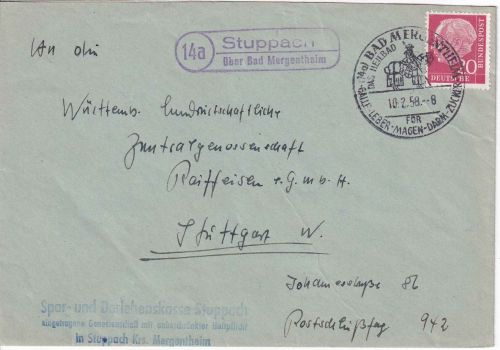 An die
14a
Stuppach
über Bad Mergentheim
BAD MERGENTHEIM
DAS HEILBAD
10.2.58.-8
FÜR
GALLE-LEBER-MAGEN-DARM-ZUCKER
20
DEUTSCHE BUNDESPOST
Württemb. landwirtschaftliche
Zentralgenossenschaft
Raiffeisen e.G.m.b.H
Stuttgart W.
Johannesstraße 86
Postschließfach 942
Spar- und Darlehenskasse Stuppach
eingetragene Genossenschaft mit unbeschränkter Haftpflicht
in Stuppach Krs. Mergentheim